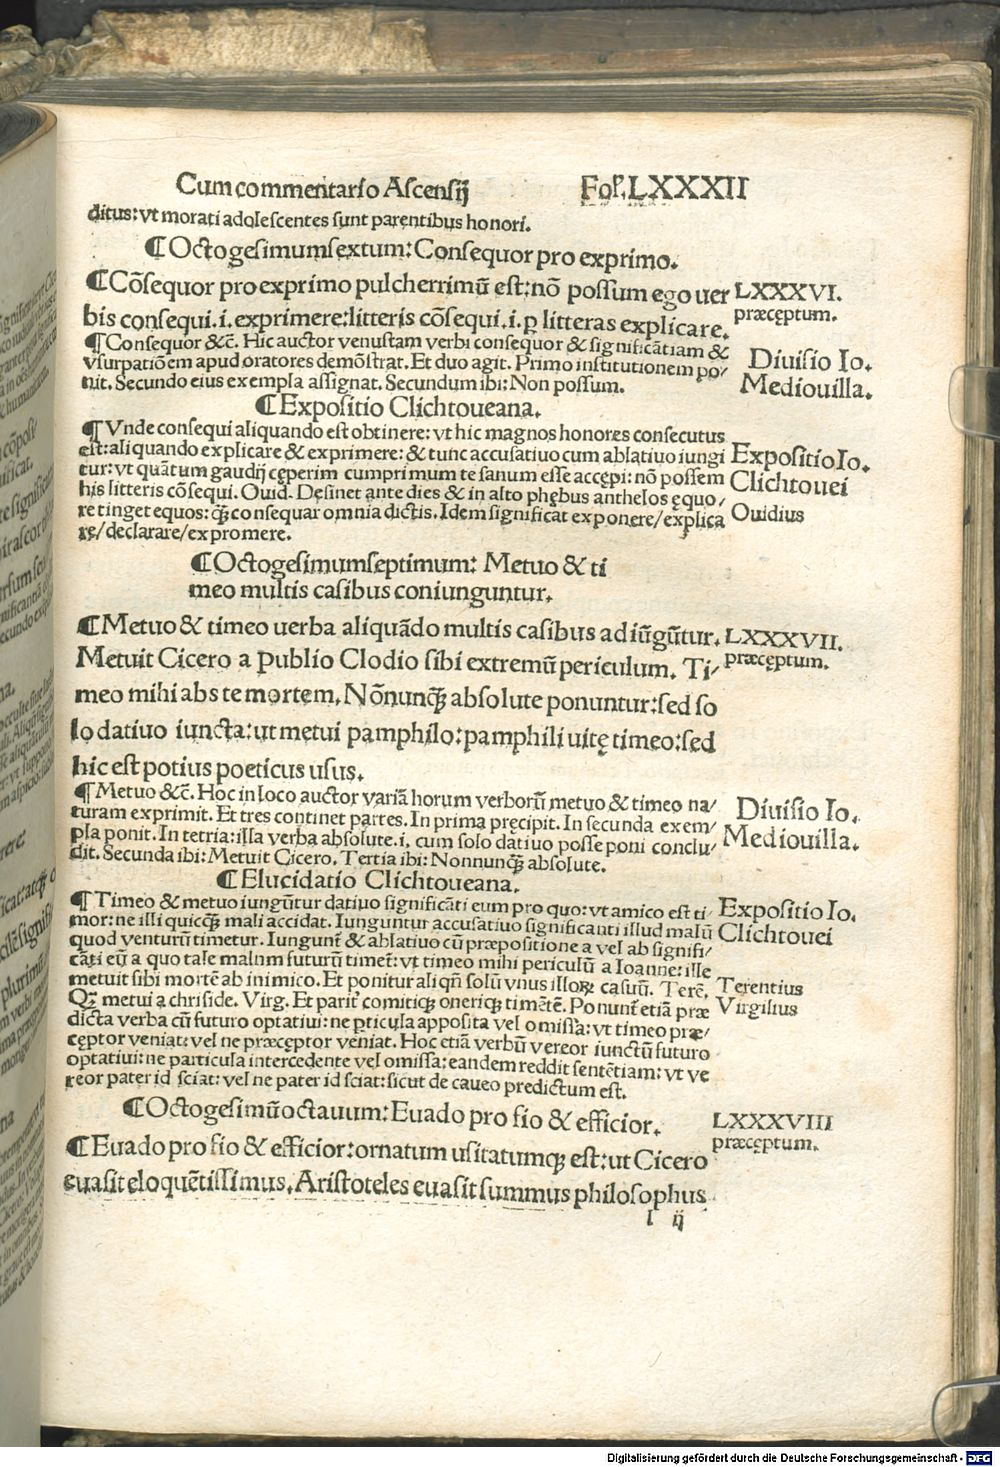 Cum commentario Ascensij Fol. LXXXII
ditus: vt morati adolescentes sunt parentibus honori.
¶ Octogesimumsextum: Consequor pro exprimo.
¶ Cõsequor pro exprimo pulcherrimũ est: nõ possum ego uer
bis consequi. i. exprimere: litteris cõsequi. i. ꝑ litteras explicare.
LXXXVI.
præcęptum.
¶ Consequor &c̃. Hic auctor venustam verbi consequor & significãtiam &
vsurpatiõem apud oratores demõstrat. Et duo agit. Primo institutionem po/
nit. Secundo eius exempla assignat. Secundum ibi: Non possum.
Diuisio Io.
Mediouilla.
¶ Expositio Clichtoueana.
¶ Vnde consequi aliquando est obtinere: vt hic magnos honores consecutus
est: aliquando explicare & exprimere: & tunc accusatiuo cum ablatiuo iungi
tur: vt quãtum gaudij cęperim cumprimum te sanum esse accępi: nõ possem
his litteris cõsequi. Ouid. Desinet ante dies & in alto phębus anthelos ęquo/
re tinget equos: q̃ȝ consequar omnia dictis. Idem significat exponere/explica
re/declarare/expromere.
Expositio Io.
Clichtouei
Ouidius
¶ Octogesimumseptimum: Metuo & ti
meo multis casibus coniunguntur.
¶ Metuo & timeo uerba aliquãdo multis casibus adiũgũtur.
Metuit Cicero a Publio Clodio sibi extremũ periculum. Ti/
meo mihi abs te mortem. Nõnunq̃ȝ absolute ponuntur: sed so
lo datiuo iuncta: ut metui pamphilo: pamphili uitę timeo: sed
hic est potius poeticus usus.
LXXXVII.
præcęptum.
¶ Metuo &c̃. Hoc in loco auctor variã horum verborũ metuo & timeo na/
turam exprimit. Et tres continet partes. In prima pręcipit. In secunda exem/
pla ponit. In tetria: illa verba absolute. i. cum solo datiuo posse poni conclu/
dit. Secunda ibi: Metuit Cicero. Tertia ibi: Nonnunq̃ȝ absolute.
Diuisio Io.
Mediouilla.
¶ Elucidatio Clichtoueana.
¶ Timeo & metuo iungũtur datiuo significãti eum pro quo: vt amico est ti/
mor: ne illi quicq̃ȝ mali accidat. Iunguntur accusatiuo significanti illud malũ
quod venturũ timetur. Iungunt̃ & ablatiuo cũ præpositione a vel ab signifi/
cãti eũ a quo tale malum futurũ timet̃: vt timeo mihi periculũ a Ioanne: ille
metuit sibi mortẽ ab inimico. Et ponitur aliqñ solũ vnus illoꝝ casuũ. Terẽ.
Qȝ metui a chriside. Virg. Et parit̃ comitiqȝ oneriqȝ timẽtẽ. Ponunt̃ etiã præ
dicta verba cũ futuro optatiui: ne ꝑticula apposita vel omissa: vt timeo præ/
cęptor veniat: vel ne præcęptor veniat. Hoc etiã verbũ vereor iunctũ futuro
optatiui: ne particula intercedente vel omissa: eandem reddit sentẽtiam: vt ve
reor pater id sciat: vel ne pater id sciat: sicut de caueo predictum est.
Expositio Io.
Clichtouei
Terentius
Virgilius
¶ Octogesimũoctauum: Euado pro fio & efficior.
¶ Euado pro fio & efficior: ornatum usitatumqȝ est: ut Cicero
euasit eloquẽtissimus. Aristoteles euasit summus philosophus
LXXXVIII
præcęptum.
l ij
Digitalisierung gefördert durch die Deutsche Forschungsgemeinschaft - DFG